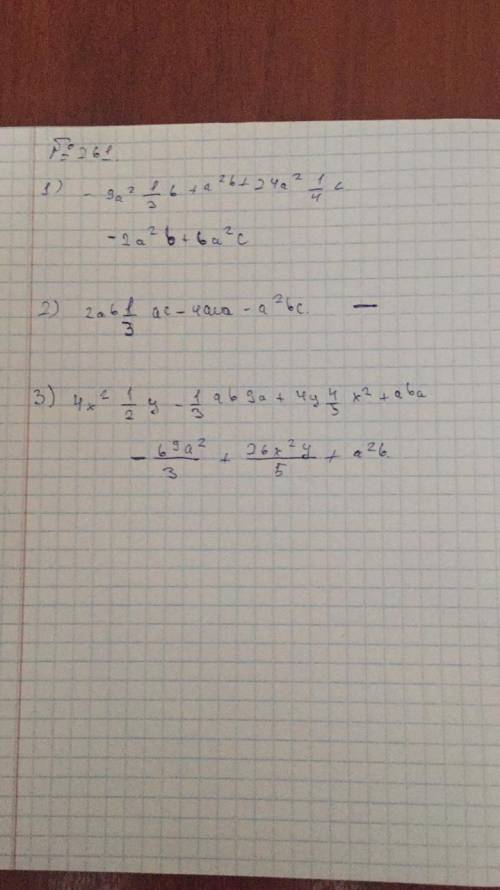 № 261.
1) - 9a² 1/3 b + a²b + 24a² 1/4 c
-2a²b + 6a²c
2) 2ab 1/3 ac - 4aaa - a²bc. —
3) 4x² 1/2 y - 1/3 ab9a + 4y 4/5 x² + aba
- b9a²/3 + 26x²y/5 + a²b.